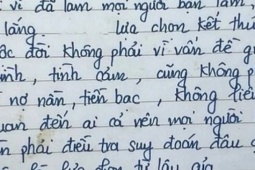 vì đã làm mọi người bận tâm,
lắng. lựa chọn kết thú
ộc đời không phải vì vấn đề g
ình, tình cảm, cũng không p
nợ nần, tiền bạc, không liê
uan đến ai cả nên mọi người
n phải điều tra suy đoán đâu